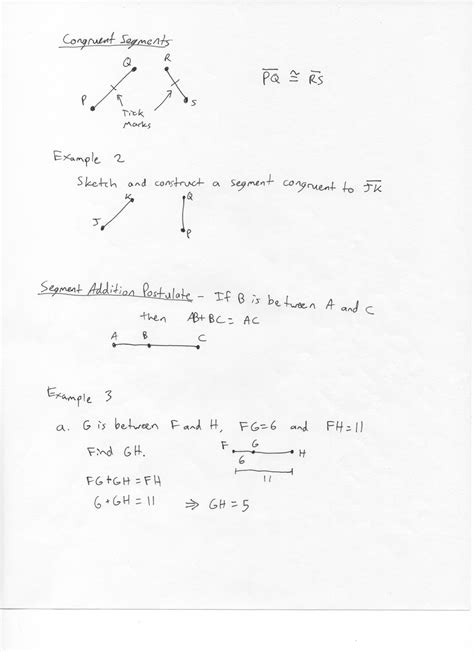 Congruent Segments
Q R
P S
Tick
Marks
P̅Q̅ ≅ R̅S̅
Example 2
Sketch and construct a segment congruent to J̅K̅
K Q
J P
Segment Addition Postulate - If B is between A and C
then AB+BC= AC
A B C
Example 3
a. G is between F and H, FG=6 and FH=11
Find GH.
F G H
6
11
FG+GH=FH
6+GH=11 ⇒ GH=5